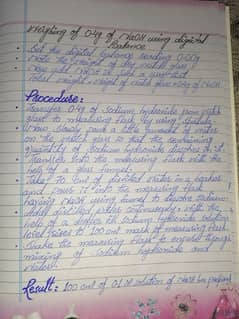 Weighting of 0.4g of NaOH using digital
Balance
• Set the digital balance reading 0.00g
• Note the weight of dry watch glass
• Now add NaOH in such a way that
Total weight = weight of watch glass + 0.4g of NaOH
Procedure:
• Transfer 0.4g of sodium hydroxide from watch
glass to measuring flask by using spatula
• Now slowly pour a little amount of water
on the watch glass so that the remaining
quantity of sodium hydroxide dissolves in it.
• Transfer into the measuring flask with the
help of a glass funnel.
• Take of distilled water in a beaker
and pour it into the measuring flask
having NaOH using funnel to dissolve sodium
• Add distilled water continuously with the
help of a till sodium hydroxide solution
level raises to 100 cm³ mark of measuring flask.
• Shake the measuring flask to ensure thorough
mixing of sodium hydroxide and
water.
Result: 100 cm³ of 0.1M solution of NaOH has prepared